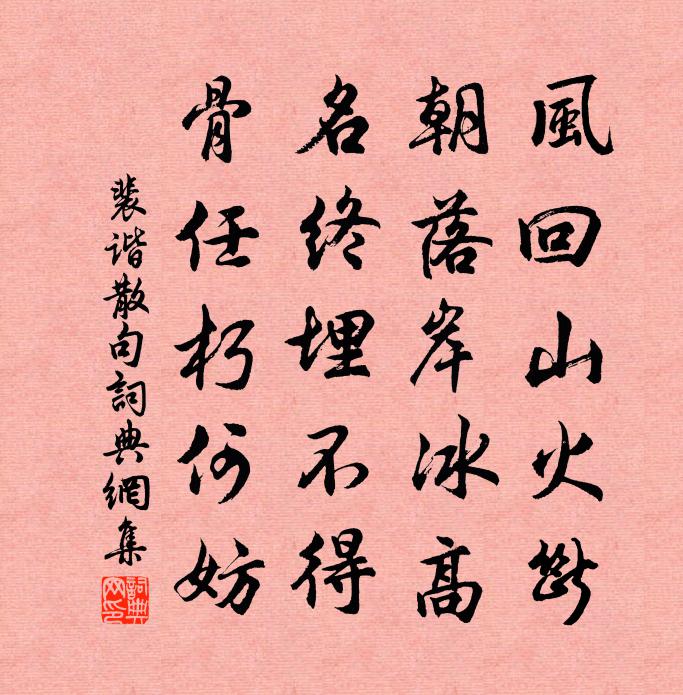 風回山火斷
朝落岸冰高
名終埋不得
骨任朽何妨
裴谐散句詞典網集
詞典網印